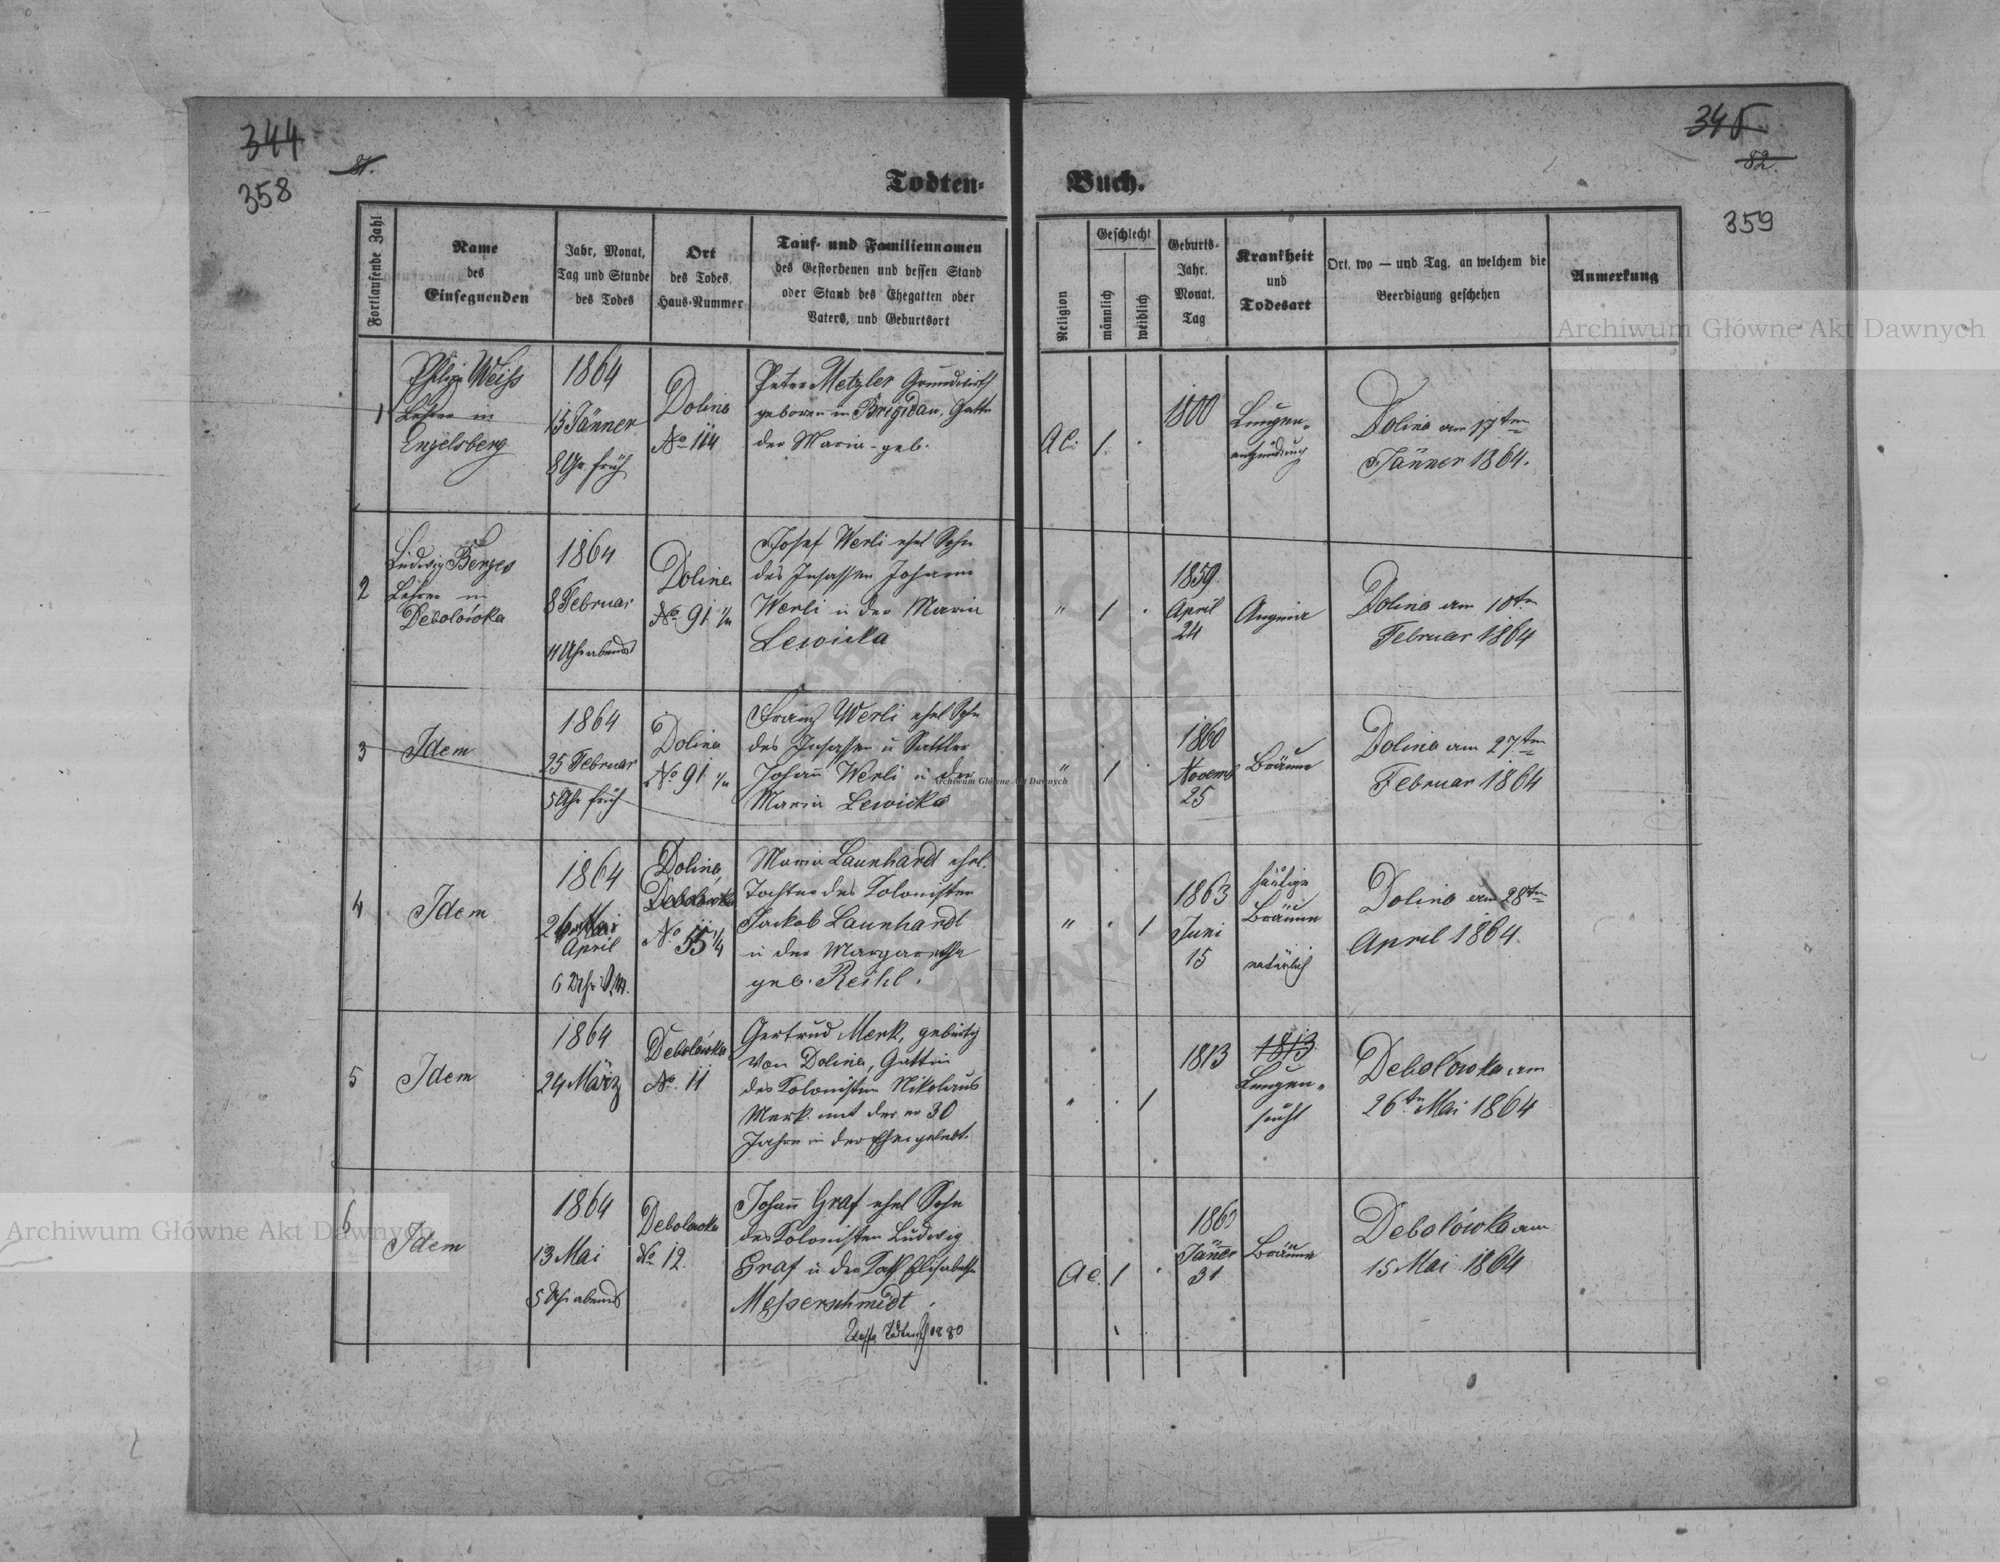 344
358
81.
345
82.
359
Todten-
Buch.
Fortlaufende Zahl
Name
des
Einsegnenden
Jahr, Monat,
Tag und Stunde
des Todes
Ort
des Todes,
Haus-Nummer
Tauf- und Familiennamen
des Gestorbenen und dessen Stand
oder Stand des Ehegatten oder
Vaters, und Geburtsort
Religion
Geschlecht
männlich
weiblich
Geburts-
Jahr.
Monat.
Tag
Krankheit
und
Todesart
Ort, wo — und Tag, an welchem die
Beerdigung geschehen
Anmerkung
1
Philipp Weiss
Lehrer in
Engelsberg
1864
15 Jänner
8 Uhr früh
Dolina
No 114
Peter Metzler Grundwirth
geboren in Brigidau, Gatte
der Maria - geb.
AC.
1
1800
Lungen-
entzündung
Dolina am 17ten
Jänner 1864.
2
Ludwig Berges
Lehrer in
Debolówka
1864
8 Februar
11 Uhr abends
Dolina
No 91
Josef Werli ehel Sohn
des Insassen Johann
Werli u der Maria
Lewicka
"
1
1859.
April
24
Angina
Dolina am 10ten
Februar 1864
3
Idem
1864
25 Februar
5 Uhr früh
Dolina
No 91
Franz Werli ehel Sohn
des Insassen u Sattler
Johann Werli u der
Maria Lewicka
"
1
1860
Novemb
25
Bräune
Dolina am 27ten
Februar 1864
4
Idem
1864
26
April
6 Uhr
Dolina,
Debolówka
No 55 1/4
Maria Launhardt ehel.
Tochter des Kolonisten
Jackob Launhardt
u der Margarethe
geb. Reihl.
"
1
1863
Juni
15
häutige
Bräune
natürlich
Dolina am 28ten
April 1864.
5
Idem
1864
24 März
Debolówka
No. 11
Gertrud Merk, gebürtig
von Dolina, Gattin
des Kolonisten Nikolaus
Merk. mit der er 30
Jahre in der Ehe gelebt.
"
1
1813
1813
Lungen-
sucht
Debolówka am
26ten Mai 1864
6
Idem
1864
13 Mai
5 Uhr abends
Debolowka
No 12.
Johann Graf ehel Sohn
des Kolonisten Ludwig
Graf u der Kath Elisabethe
Messerschmidt
1880
AC.
1
1860
Jänner
31
Bräune
Debolówka am
15 Mai 1864
Archiwum Główne Akt Dawnych
Archiwum Główne Akt Dawnych
Archiwum Główne Akt Dawnych